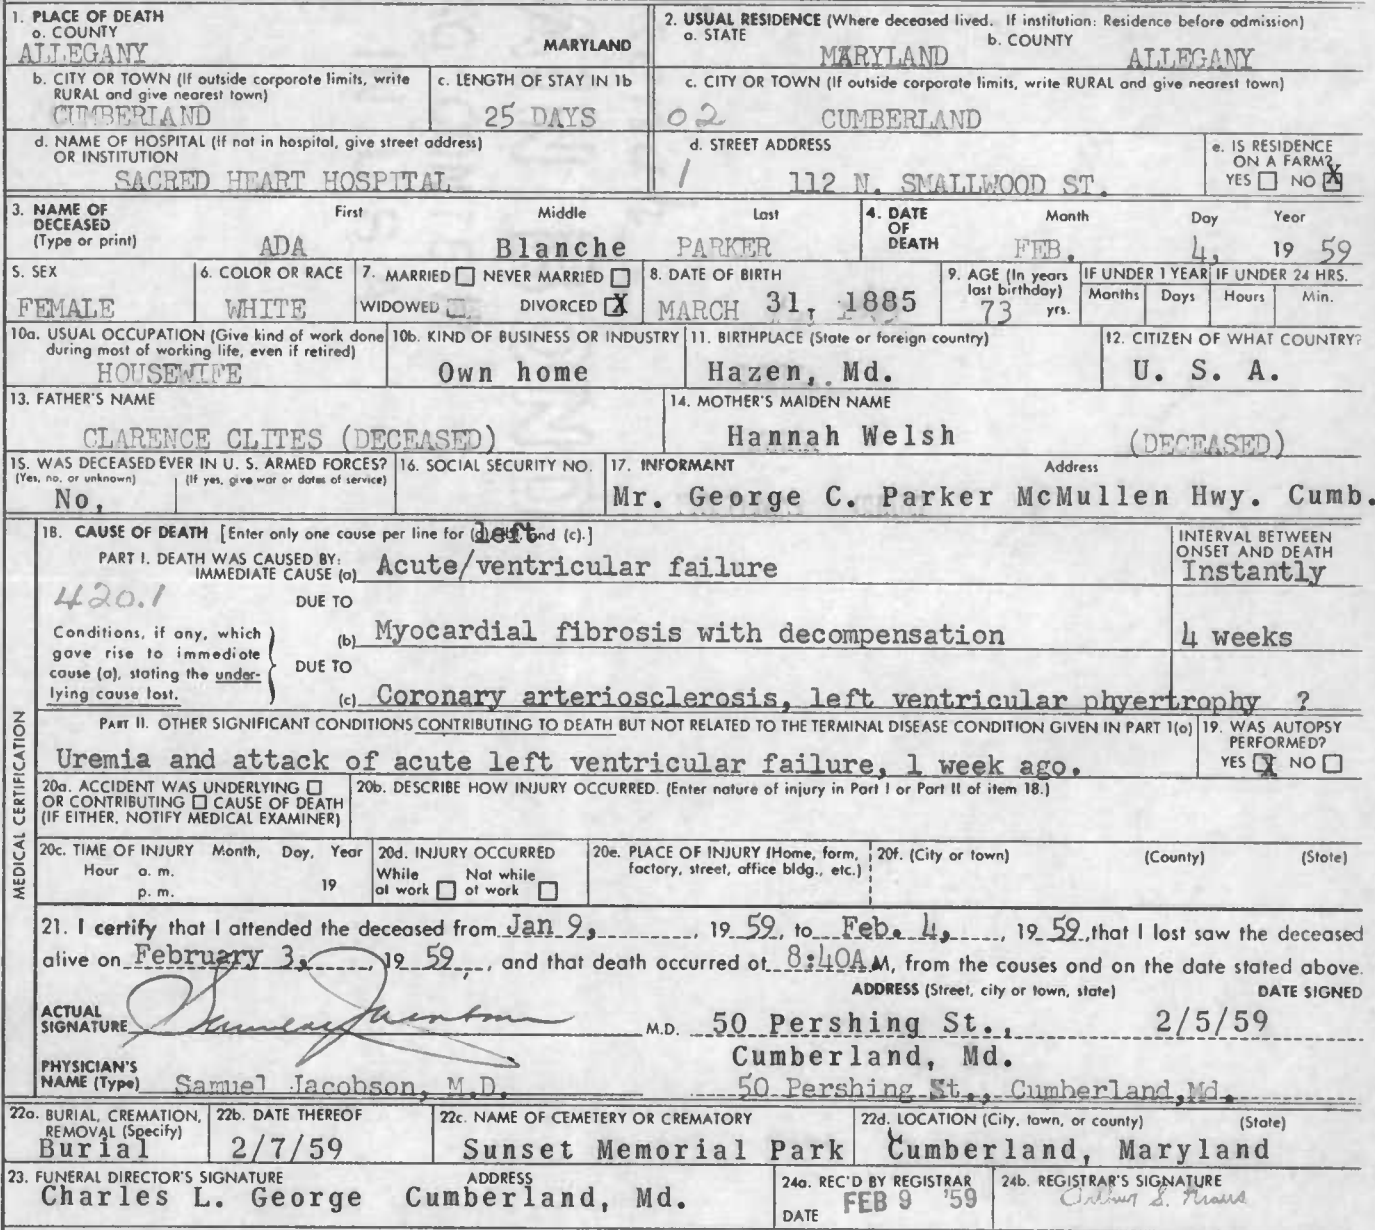 1. PLACE OF DEATH
a. COUNTY
ALLEGANY MARYLAND
2. USUAL RESIDENCE (Where deceased lived. If institution: Residence before admission)
a. STATE b. COUNTY
MARYLAND ALLEGANY
b. CITY OR TOWN (If outside corporate limits, write
RURAL and give nearest town)
CUMBERLAND
c. LENGTH OF STAY IN 1b
25 DAYS
c. CITY OR TOWN (If outside corporate limits, write RURAL and give nearest town)
02 CUMBERLAND
d. NAME OF HOSPITAL (If not in hospital, give street address)
OR INSTITUTION
SACRED HEART HOSPITAL
d. STREET ADDRESS
1 112 N. SMALLWOOD ST.
e. IS RESIDENCE
ON A FARM?
YES NO X
3. NAME OF
DECEASED
(Type or print)
First Middle Last
ADA Blanche PARKER
4. DATE
OF
DEATH
Month Day Year
FEB. 4, 19 59
5. SEX
FEMALE
6. COLOR OR RACE
WHITE
7. MARRIED NEVER MARRIED
WIDOWED DIVORCED X
8. DATE OF BIRTH
MARCH 31, 1885
9. AGE (In years
last birthday)
73 yrs.
IF UNDER 1 YEAR IF UNDER 24 HRS.
Months Days Hours Min.
10a. USUAL OCCUPATION (Give kind of work done
during most of working life, even if retired)
HOUSEWIFE
10b. KIND OF BUSINESS OR INDUSTRY
Own home
11. BIRTHPLACE (State or foreign country)
Hazen, Md.
12. CITIZEN OF WHAT COUNTRY?
U. S. A.
13. FATHER'S NAME
CLARENCE CLITES (DECEASED)
14. MOTHER'S MAIDEN NAME
Hannah Welsh (DECEASED)
15. WAS DECEASED EVER IN U. S. ARMED FORCES?
(Yes, no, or unknown) (If yes, give war or dates of service)
No,
16. SOCIAL SECURITY NO.
17. INFORMANT Address
Mr. George C. Parker McMullen Hwy. Cumb.
MEDICAL CERTIFICATION
18. CAUSE OF DEATH [Enter only one cause per line for (a), left and (c).]
INTERVAL BETWEEN
ONSET AND DEATH
PART I. DEATH WAS CAUSED BY:
IMMEDIATE CAUSE (a) Acute/ventricular failure Instantly
420.1
DUE TO
Conditions, if any, which
gave rise to immediate
cause (a), stating the under-
lying cause last.
(b) Myocardial fibrosis with decompensation 4 weeks
DUE TO
(c) Coronary arteriosclerosis, left ventricular phyertrophy ?
PART II. OTHER SIGNIFICANT CONDITIONS CONTRIBUTING TO DEATH BUT NOT RELATED TO THE TERMINAL DISEASE CONDITION GIVEN IN PART 1(a)
Uremia and attack of acute left ventricular failure, 1 week ago.
19. WAS AUTOPSY
PERFORMED?
YES X NO
20a. ACCIDENT WAS UNDERLYING
OR CONTRIBUTING CAUSE OF DEATH
(IF EITHER, NOTIFY MEDICAL EXAMINER)
20b. DESCRIBE HOW INJURY OCCURRED. (Enter nature of injury in Part I or Part II of item 18.)
20c. TIME OF INJURY Month, Day, Year
Hour a. m.
p. m. 19
20d. INJURY OCCURRED
While at work Not while at work
20e. PLACE OF INJURY (Home, farm,
factory, street, office bldg., etc.)
20f. (City or town) (County) (State)
21. I certify that I attended the deceased from Jan 9, 19 59, to Feb. 4, 19 59, that I last saw the deceased
alive on February 3, 19 59, and that death occurred at 8:40A M, from the causes and on the date stated above.
ADDRESS (Street, city or town, state) DATE SIGNED
ACTUAL
SIGNATURE Samuel Jacobson M.D. 50 Pershing St., 2/5/59
Cumberland, Md.
PHYSICIAN'S
NAME (Type) Samuel Jacobson, M.D. 50 Pershing St., Cumberland, Md.
22a. BURIAL, CREMATION,
REMOVAL (Specify)
Burial
22b. DATE THEREOF
2/7/59
22c. NAME OF CEMETERY OR CREMATORY
Sunset Memorial Park
22d. LOCATION (City, town, or county) (State)
Cumberland, Maryland
23. FUNERAL DIRECTOR'S SIGNATURE ADDRESS
Charles L. George Cumberland, Md.
24a. REC'D BY REGISTRAR
DATE FEB 9 '59
24b. REGISTRAR'S SIGNATURE
Arthur S. Kraus